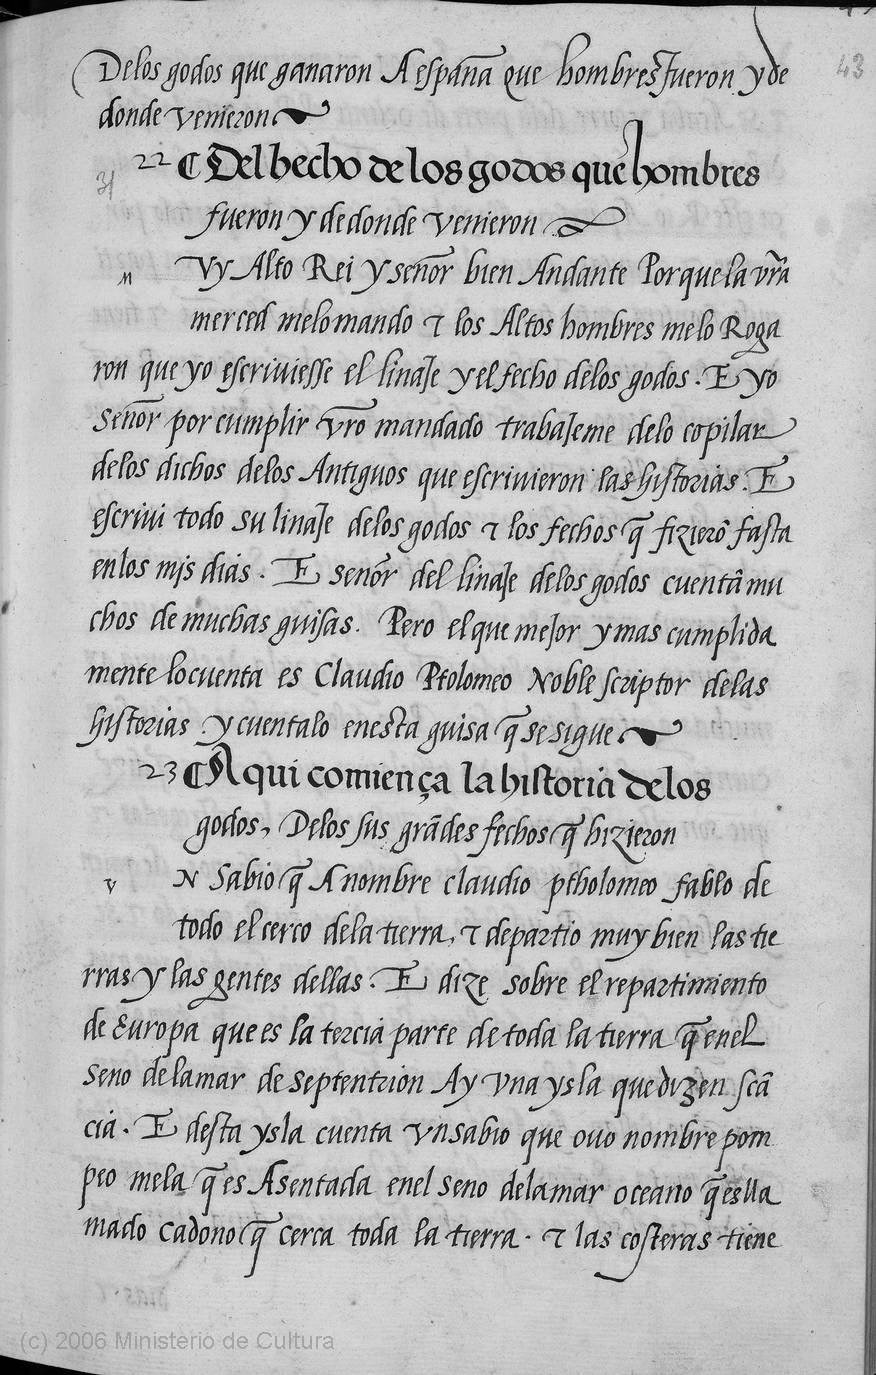 43
Delos godos que ganaron A españa que hombres fueron y de
donde venieron
22 ¶ Del hecho de los godos que hombres
fueron y de donde venieron
m Vy Alto Rei y señor bien Andante Porque la vrã
merced melo mando τ los Altos hombres melo Roga
ron que yo escriviesse el linaje y el fecho delos godos. E yo
señor por cumplir vr̃o mandado trabajeme delo copilar
delos dichos delos Antiguos que escrivieron las historias. E
escrivi todo su linaje delos godos τ los fechos q̃ fizierõ fasta
enlos mjs dias. E señor del linaje delos godos cuentã mu
chos de muchas guisas. Pero el que mejor y mas cumplida
mente lo cuenta es Claudio Ptolomeo Noble scriptor delas
historias y cuentalo enesta guisa q̃ se sigue
23 ¶ Aqui comiença la historia delos
godos, Delos sus grãdes fechos q̃ hizieron
v N Sabio q̃ A nombre claudio ptholomeo fablo de
todo el cerco dela tierra, τ departio muy bien las tie
rras y las gentes dellas. E dize sobre el repartimiento
de Europa que es la tercia parte de toda la tierra q̃ enel
seno dela mar de septentrion Ay vna ysla que dizen scã
cia. E desta ysla cuenta vn sabio que ouo nombre pom
peo mela q̃ es Asentada enel seno dela mar oceano q̃ es lla
mado cadono q̃ cerca toda la tierra. τ las costeras tiene
(c) 2006 Ministerio de Cultura